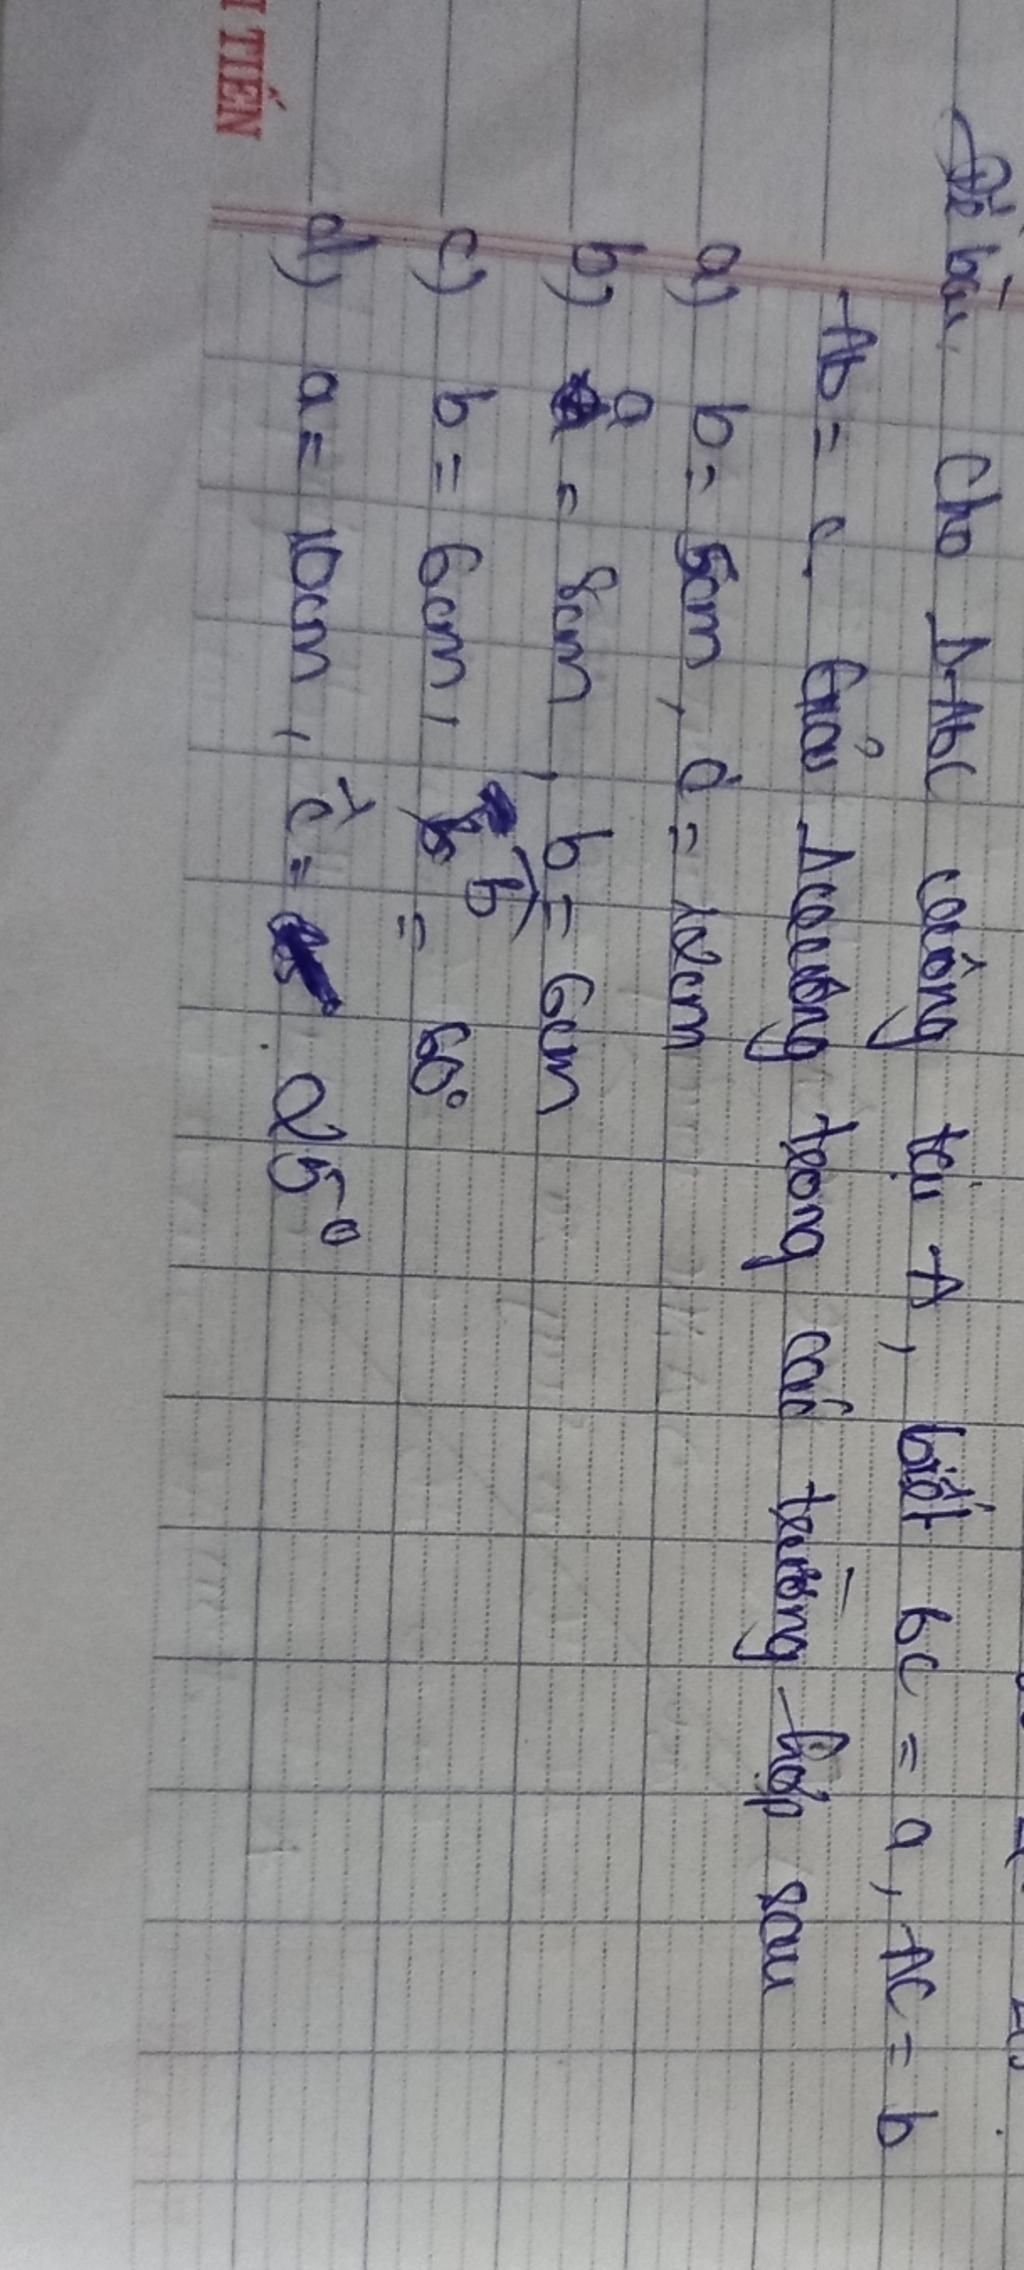 Đề bài. Cho ΔABC vuông tại A, biết BC = a, AC = b
AB = c. Giải Δvuông trong các trường hợp sau
a) b = 5cm, c = 12cm
b) a = 8cm, b = 6cm
c) b = 6cm, B̂ = 60°
d) a = 10cm, Ĉ = 25°
I TIẾN